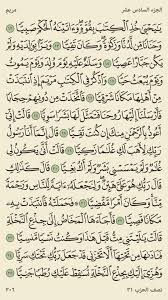 الجزء السادس عشر مريم
يَـٰيَحْيَىٰ خُذِ ٱلْكِتَـٰبَ بِقُوَّةٍ وَءَاتَيْنَـٰهُ ٱلْحُكْمَ صَبِيًّا ١٢
وَحَنَانًا مِّن لَّدُنَّا وَزَكَوٰةً وَكَانَ تَقِيًّا ١٣ وَبَرًّۢا بِوَٰلِدَيْهِ
وَلَمْ يَكُن جَبَّارًا عَصِيًّا ١٤ وَسَلَـٰمٌ عَلَيْهِ يَوْمَ وُلِدَ وَيَوْمَ يَمُوتُ
وَيَوْمَ يُبْعَثُ حَيًّا ١٥ وَٱذْكُرْ فِى ٱلْكِتَـٰبِ مَرْيَمَ إِذِ ٱنتَبَذَتْ
مِنْ أَهْلِهَا مَكَانًا شَرْقِيًّا ١٦ فَٱتَّخَذَتْ مِن دُونِهِمْ حِجَابًا
فَأَرْسَلْنَآ إِلَيْهَا رُوحَنَا فَتَمَثَّلَ لَهَا بَشَرًا سَوِيًّا ١٧ قَالَتْ إِنِّىٓ
أَعُوذُ بِٱلرَّحْمَـٰنِ مِنكَ إِن كُنتَ تَقِيًّا ١٨ قَالَ إِنَّمَآ أَنَا۠ رَسُولُ
رَبِّكِ لِأَهَبَ لَكِ غُلَـٰمًا زَكِيًّا ١٩ قَالَتْ أَنَّىٰ يَكُونُ لِى غُلَـٰمٌ
وَلَمْ يَمْسَسْنِى بَشَرٌ وَلَمْ أَكُ بَغِيًّا ٢٠ قَالَ كَذَٰلِكِ قَالَ رَبُّكِ
هُوَ عَلَىَّ هَيِّنٌ وَلِنَجْعَلَهُۥٓ ءَايَةً لِّلنَّاسِ وَرَحْمَةً مِّنَّا وَكَانَ
أَمْرًا مَّقْضِيًّا ٢١ ۞ فَحَمَلَتْهُ فَٱنتَبَذَتْ بِهِۦ مَكَانًا قَصِيًّا ٢٢
فَأَجَآءَهَا ٱلْمَخَاضُ إِلَىٰ جِذْعِ ٱلنَّخْلَةِ قَالَتْ يَـٰلَيْتَنِى مِتُّ
قَبْلَ هَـٰذَا وَكُنتُ نَسْيًا مَّنسِيًّا ٢٣ فَنَادَىٰهَا مِن تَحْتِهَآ
أَلَّا تَحْزَنِى قَدْ جَعَلَ رَبُّكِ تَحْتَكِ سَرِيًّا ٢٤
وَهُزِّىٓ إِلَيْكِ بِجِذْعِ ٱلنَّخْلَةِ تُسَـٰقِطْ عَلَيْكِ رُطَبًا جَنِيًّا ٢٥
نصف الحزب ٣١ ٣٠٦